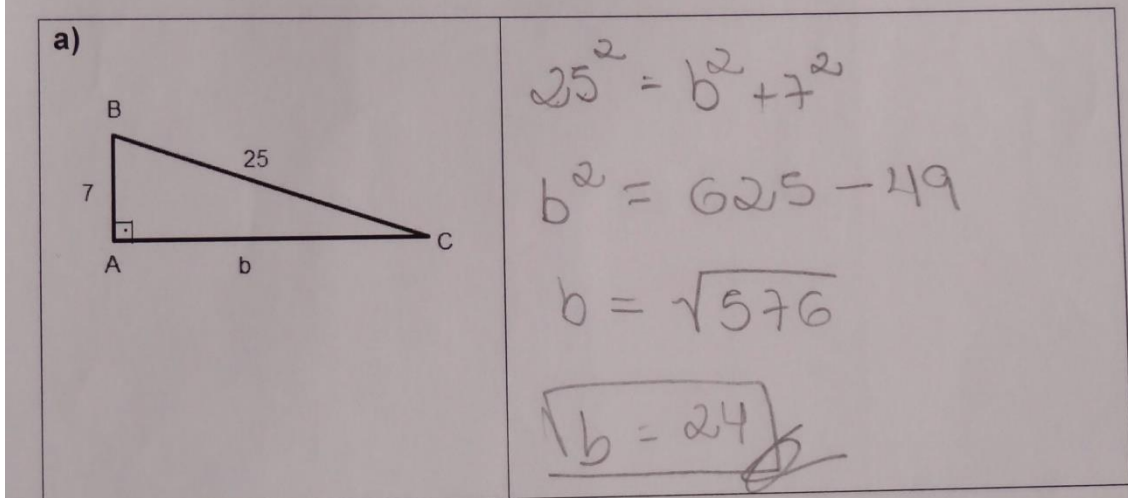 a)
B
25
7
A
b
C
25² = b² + 7²
b² = 625 - 49
b = √576
b = 24